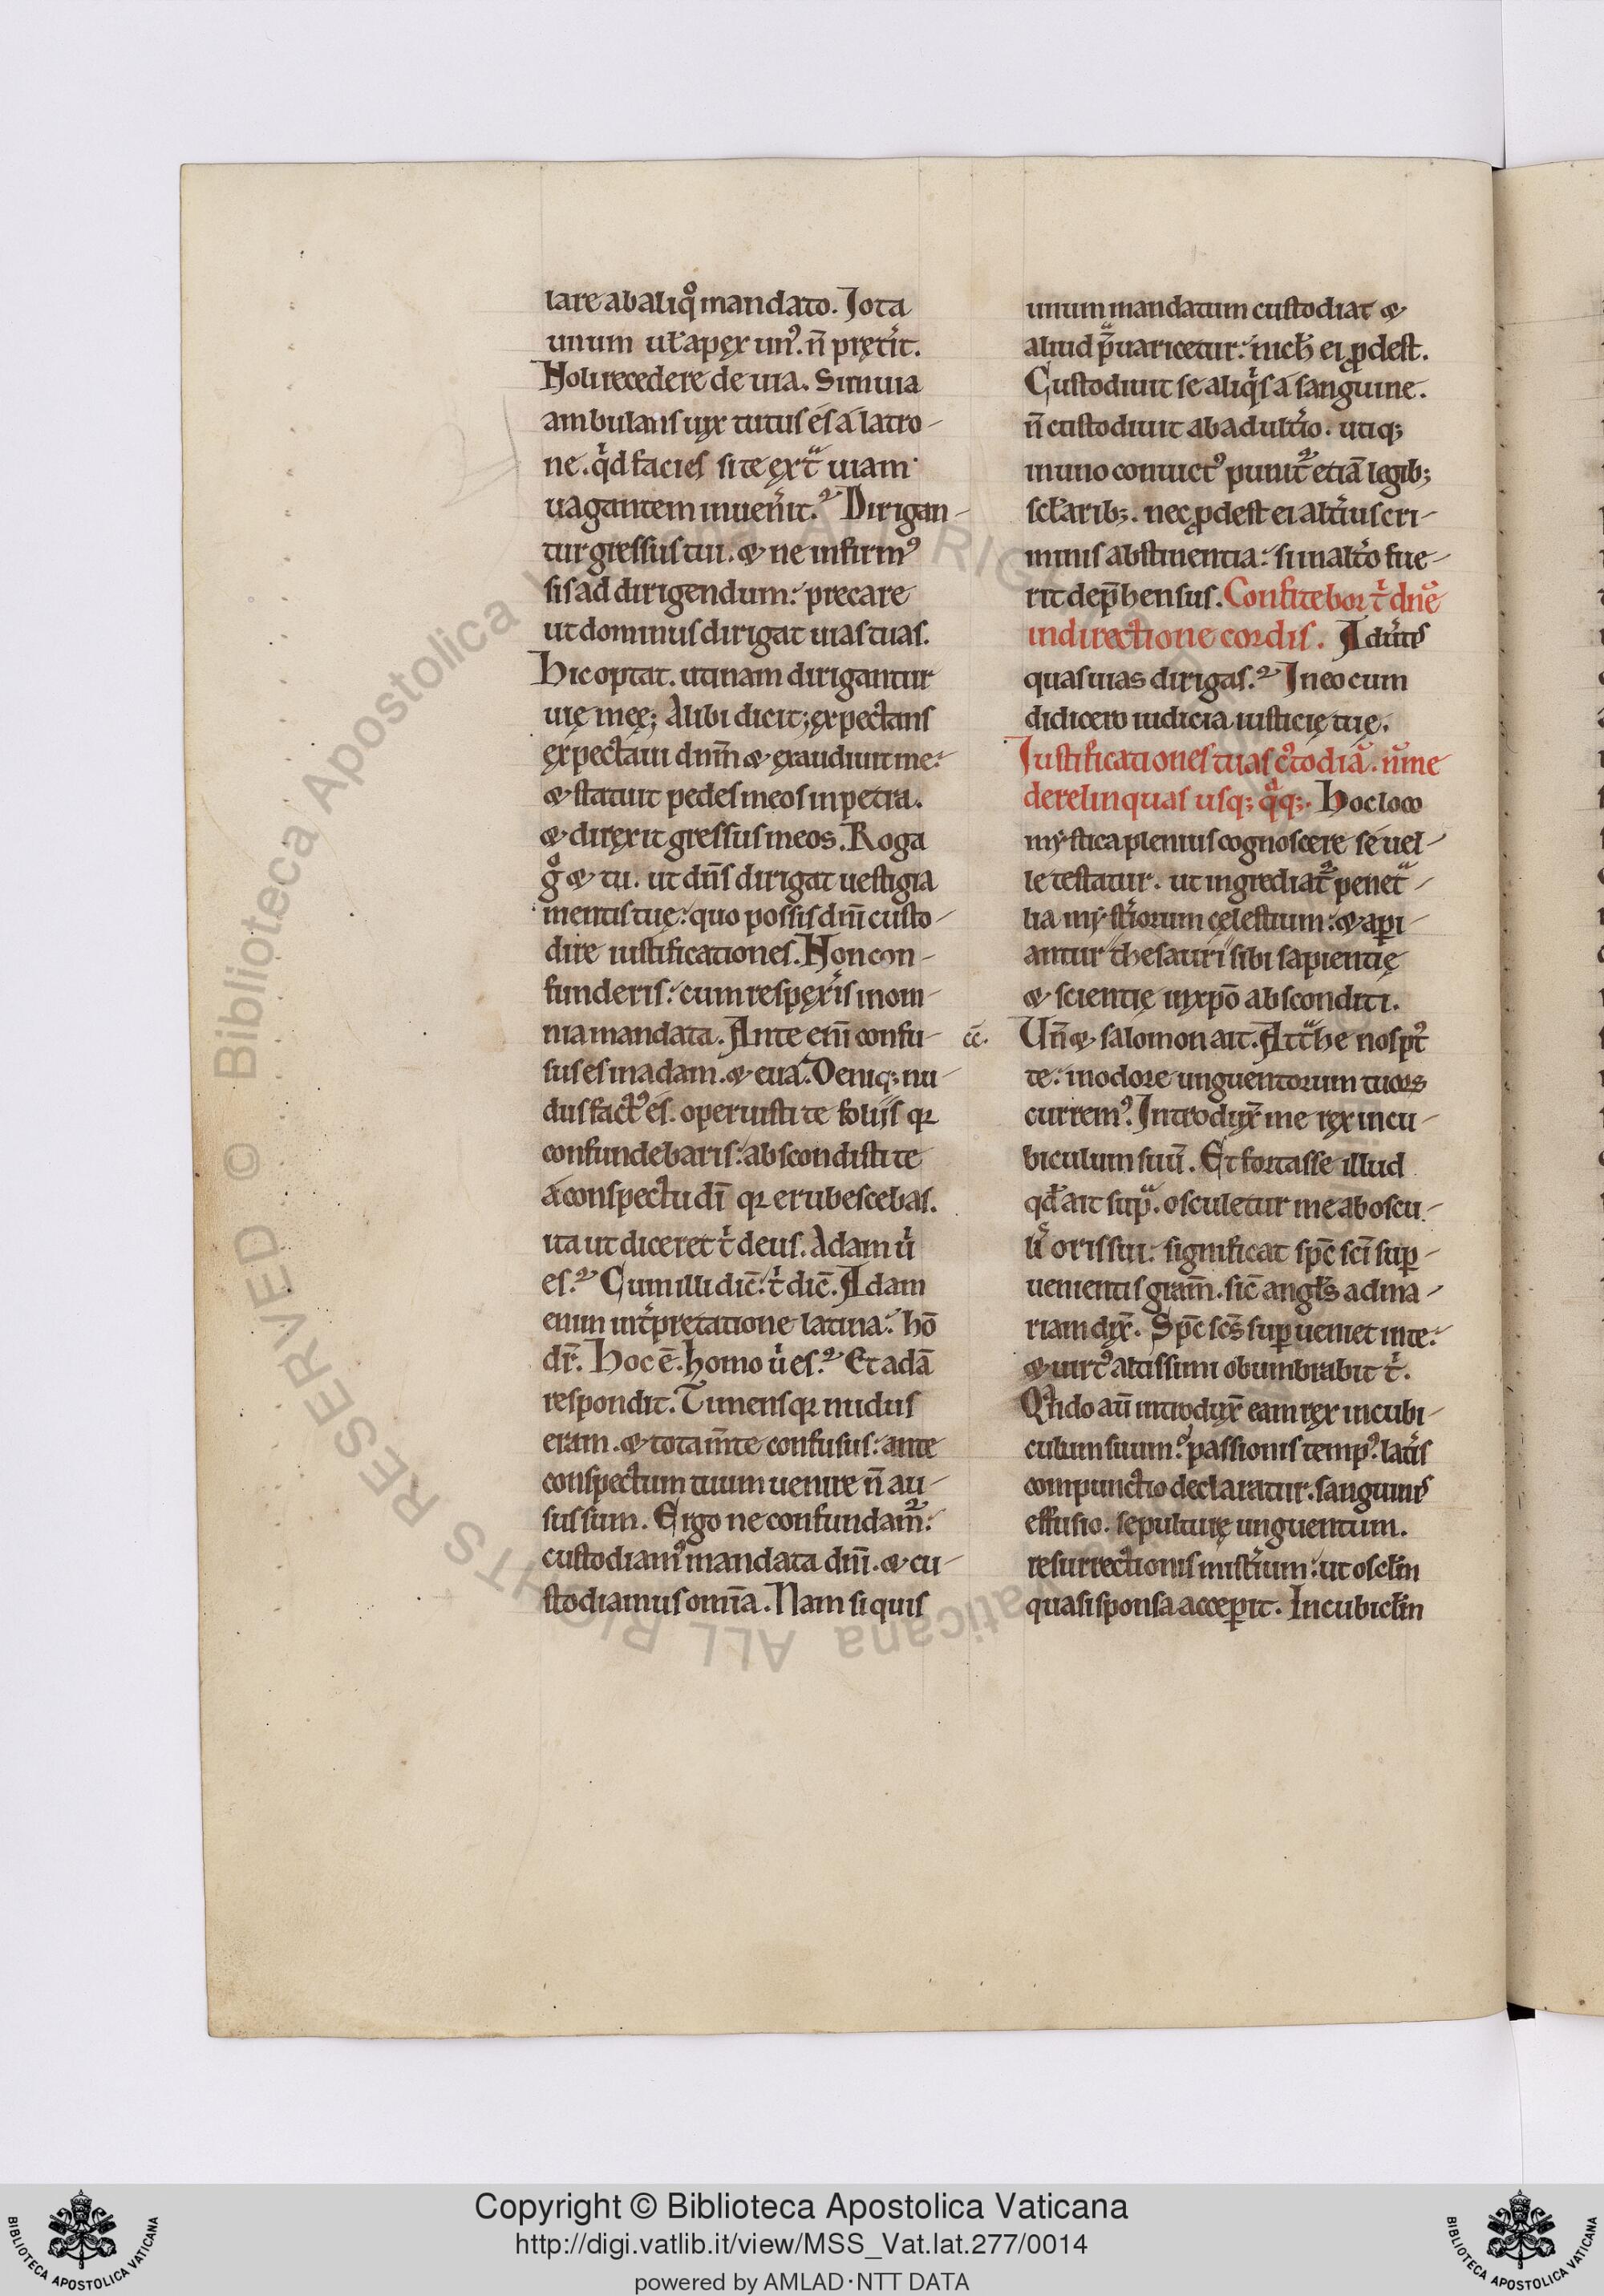 lare ab aliq̊ mandato. Iota
unum uł apex un᷒. n̄ pręt̾it.
Noli recedere de uia. Si in uia
ambulans uix tutus es a latro-
ne. qͥd facies si te ext̾ͣ uiam
uagantem inuen̾it. Dirigan-
tur gressus tui. & ne infirm᷒
sis ad dirigendum: precare
ut dominus dirigat uias tuas.
Hic optat. utinam dirigantur
uię meę; Alibi dicit; expectans
expectaui dn̄m & exaudiuit me:
& statuit pedes meos in petra.
& direxit gressus meos. Roga
g̊ & tu. ut dn̄s dirigat uestigia
mentis tuę: quo possis dn̄i custo-
dire iustificationes. Non con-
funderis: cum respex̾is in om-
nia mandata. Ante eni̅ confu-
sus es in adam. & eua. Deniq; nu-
dus fact᷒ es. operuisti te folijs qꝛ
confundebaris: abscondisti te
a conspectu di̅ qꝛ erubescebas.
ita ut diceret tͥ deus. Adam uͥ
es. Cum illi dic̄: tͥ dic̄. Adam
enim int̾pretatione latina: ho̅
dr̄. Hoc ē. homo uͥ es. Et ada̅
respondit. Timens qꝛ nudus
eram. & tota m̅te confusus: ante
conspectum tuum uenire n̄ au-
sus sum. Ergo ne confundam̅᷑:
custodiam᷒ mandata dn̄i. & cu-
stodiamus om̅ia. Nam si quis
unum mandatum custodiat &
aliud p̄uaricetur: nichł ei ꝓdest.
Custodiuit se aliqͥs a sanguine.
n̄ custodiuit ab adult̾io. utiq;
in uno conuict᷒ punit᷑ etia̅ legib;
scłarib;. nec ꝓdest ei alt̾ius cri-
minis abstinentia: si in alt̾o fue-
rit dep̄hensus. Confitebor tͥ dn̅e
in directione cordis. Aduͥtis
quas uias dirigas. In eo cum
didicero iudicia iusticię tuę.
Iustificationes tuas c᷒todia̅. n̅ me
derelinquas usq; qͣq;. Hoc loco
mystica plenius cognoscere se uel-
le testatur. ut ingrediat᷑ penetͣ-
lia myst̾iorum celestium: & aꝑi-
antur thesauri sibi sapientię
& scientię in xp̅o absconditi.
cc̄.
Un̄ & salomon ait. Attͣhe nos pt᷒
te: in odore unguentorum tuoꝝ
currem᷒. Introdux̄ me rex in cu-
biculum suu̅. Et fortasse illud
qđ ait supͣ. osculetur me ab oscu-
lͥ oris sui: significat sp̅c sc̅i suꝑ-
uenientis gr̅am. sic̄ angłs ad ma-
riam dix̄. Sp̅c sc̅s suꝑueniet in te:
& uirt᷒ altissimi obumbrabit tͥ.
Qn̅do au̅ introdux̄ eam rex in cubi-
culum suum. passionis temp᷒. lat̾is
compunctio declaratur. sanguinis
effusio. sepulturę unguentum.
resurrectionis mist̾ium: ut oscłm
quasi sponsa acceꝑit. In cubicłm
Copyright © Biblioteca Apostolica Vaticana
http://digi.vatlib.it/view/MSS_Vat.lat.277/0014
powered by AMLAD·NTT DATA
BIBLIOTECA APOSTOLICA VATICANA
BIBLIOTECA APOSTOLICA VATICANA